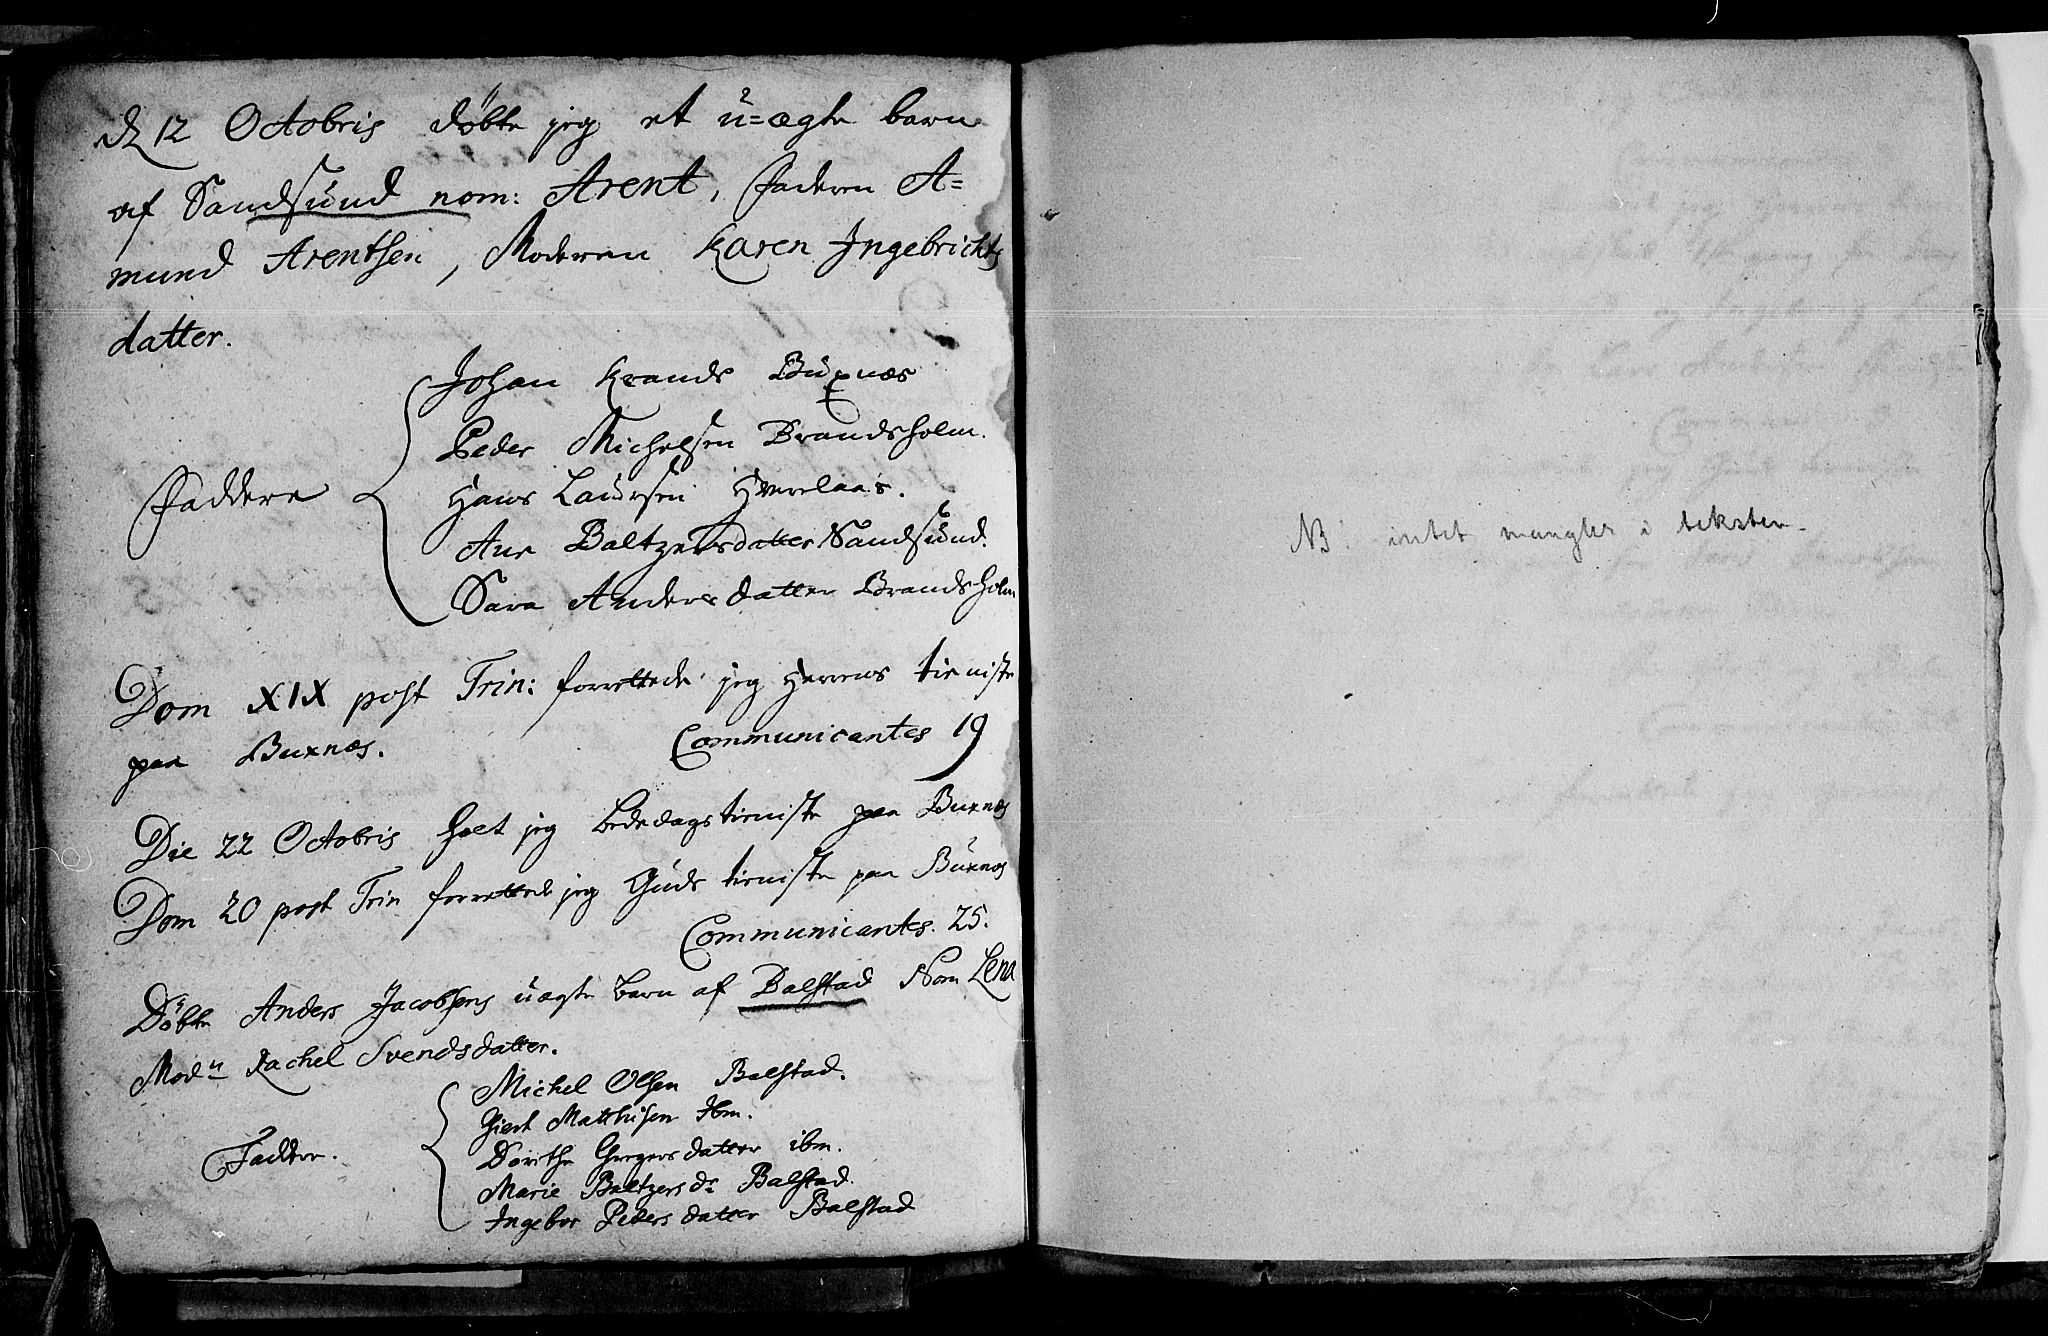 d 12 Octobris döbte jeg et ú=ægte barn
af Sandsúnd nom: Arent, Faderen A=
mund Arentsen, Moderen Karen Ingebrichts
datter.
Johan Krands Búxnæs
Peder Michelsen Brandsholm.
Faddere
Hans Laúrsen
Ane Baltzersdatter Sandsúnd.
Sara Andersdatter Brandsholm
Dom XIX post Trin: forrettede jeg Herrens tieniste
paa Buxnæs. Communicantes 19
Die 22 Octobris holt jeg Bededagstieniste paa Buxnæs
Dom 20 post Trin forrettede jeg Gúds tieniste paa Búxnæs
Communicantes. 25.
Döbte Anders Jacobsens úægte barn af Balstad Nom Lena
Modn Rachel Svendsdatter.
Michel Olsen Balstad.
Giert Matthisen Ibm.
Faddere.
Dorthe Gregersdatter ibm.
Marie Baltzersdr Balstad.
Ingebor Pedersdatter Balstad
NB! intet mangler i teksten.